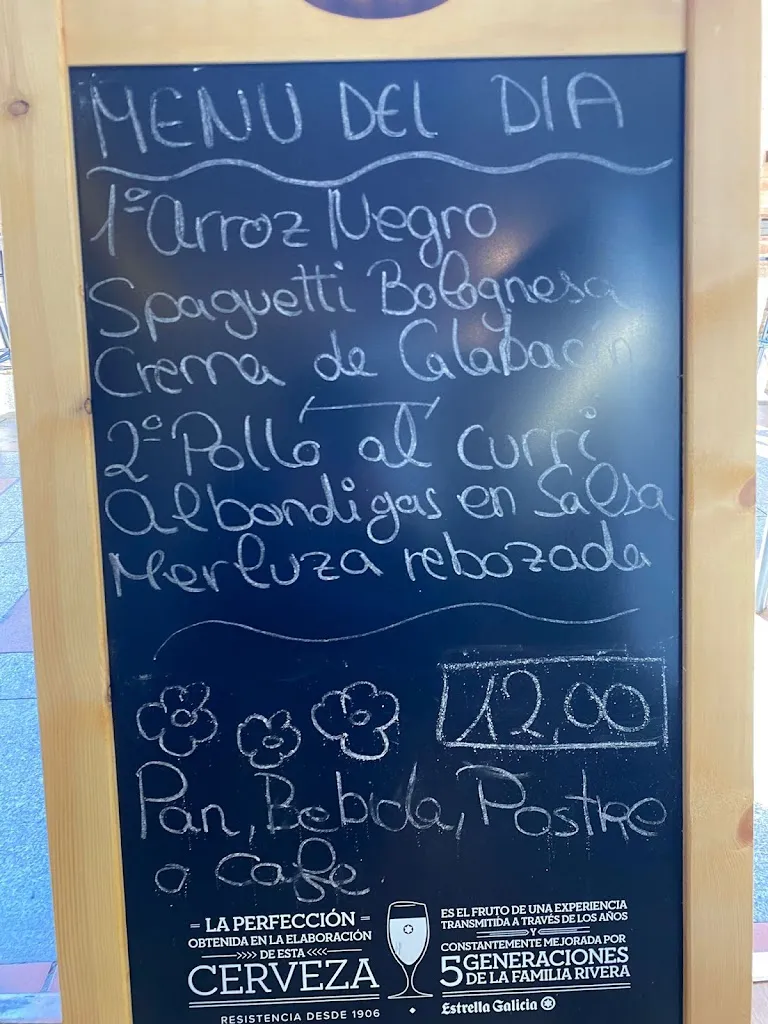 MENU DEL DIA
1º Arroz Negro
Spaguetti Bolognesa
Crema de Calabacín
2º Pollo al curri
Albondigas en Salsa
Merluza rebozada
12,00
Pan, Bebida, Postre
o cafe
LA PERFECCIÓN
OBTENIDA EN LA ELABORACIÓN
DE ESTA
CERVEZA
RESISTENCIA DESDE 1906
ES EL FRUTO DE UNA EXPERIENCIA
TRANSMITIDA A TRAVÉS DE LOS AÑOS
Y
CONSTANTEMENTE MEJORADA POR
5 GENERACIONES
DE LA FAMILIA RIVERA
Estrella Galicia